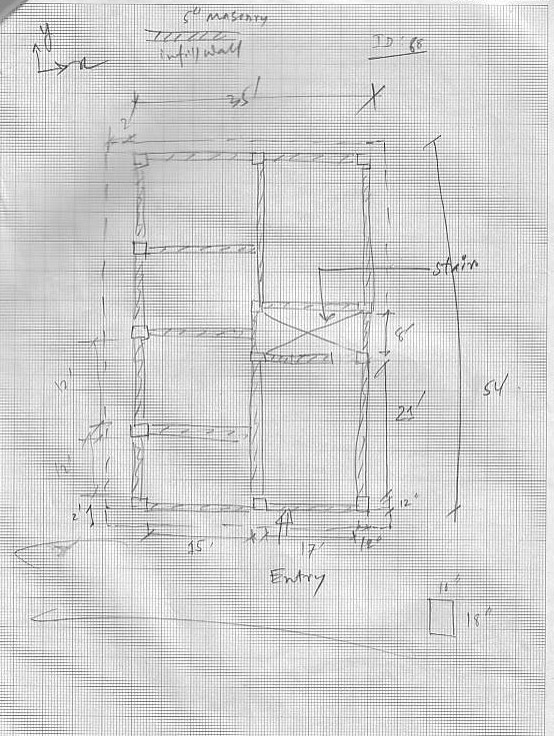 5" masonry
infill wall
ID: 68
y
x
35'
2'
stair
8'
54'
21'
12'
12'
2'
12"
15'
17'
12"
Entry
18"